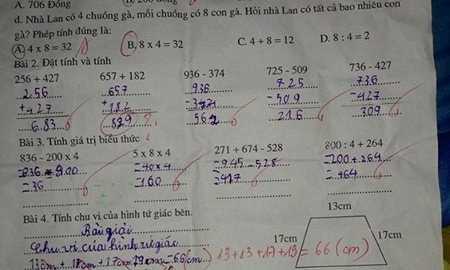 A. 706 Đồng
d. Nhà Lan có 4 chuồng gà, mỗi chuồng có 8 con gà. Hỏi nhà Lan có tất cả bao nhiêu con
gà? Phép tính đúng là:
A. 4 x 8 = 32 B. 8 x 4 = 32 C. 4 + 8 = 12 D. 8 : 4 = 2
Bài 2. Đặt tính và tính
256 + 427 657 + 182 936 - 374 725 - 509 736 - 427
256 657 936 725 736
+ 427 + 182 - 509 - 427
683 829 562 216 309
Bài 3. Tính giá trị biểu thức
836 - 200 x 4 5 x 8 x 4 271 + 674 - 528 800 : 4 + 264
= 40 x 4 = 945 - 528 = 200 + 264
= 36 = 160 = 464
Bài 4. Tính chu vi của hình tứ giác bên.
13cm
Bài giải
Chu vi của hình tứ giác
17cm 17cm
13 + 13 + 17 + = 66 (cm)